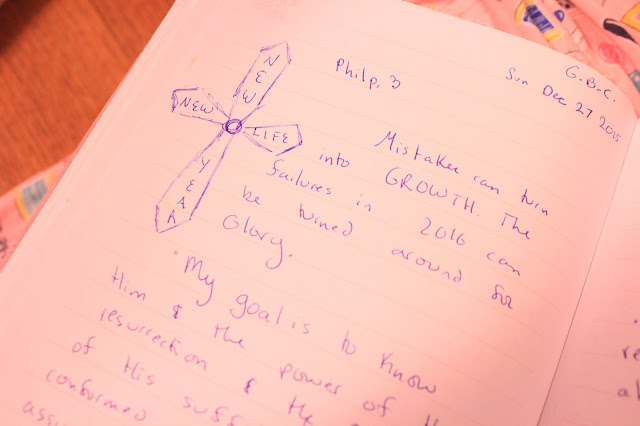 G.B.C.
Sun Dec 27 2015
Philp. 3
NEW
YEAR
NEW
LIFE
Mistakes can turn
into GROWTH. The
failures in 2016 can
be turned around for
Glory.
· My goal is to know
Him & the power of
resurrection & the
of His
conformed